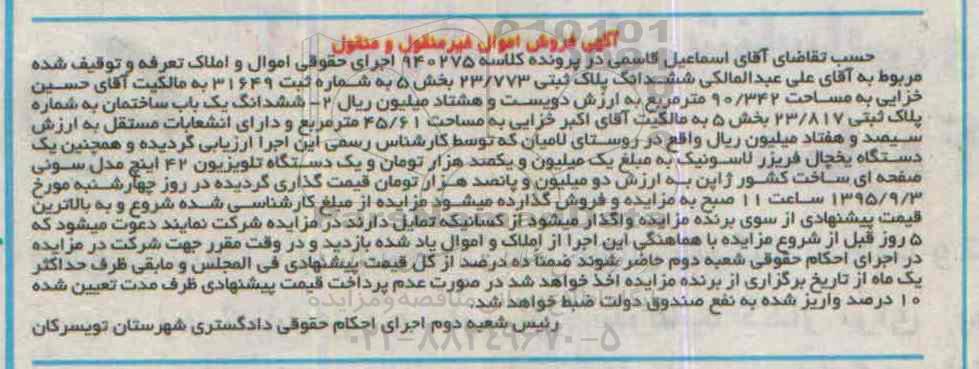 آگهی فروش اموال غیرمنقول و منقول
حسب تقاضای آقای اسماعیل قاسمی در پرونده کلاسه ۹۴۰۲۷۵ اجرای حقوقی اموال و املاک تعرفه و توقیف شده
مربوط به آقای علی عبدالمالکی ششدانگ پلاک ثبتی ۲۳/۷۷۳ بخش ۵ به شماره ثبت ۳۱۶۴۹ به مالکیت آقای حسین
خزایی به مساحت ۹۰/۳۴۲ مترمربع به ارزش دویست و هشتاد میلیون ریال ۲- ششدانگ یک باب ساختمان به شماره
پلاک ثبتی ۲۳/۸۱۷ بخش ۵ به مالکیت آقای اکبر خزایی به مساحت ۴۵/۶۱ مترمربع و دارای انشعابات مستقل به ارزش
سیصد و هفتاد میلیون ریال واقع در روستای لامیان که توسط کارشناس رسمی این اجرا ارزیابی گردیده و همچنین یک
دستگاه یخچال فریزر لاسونیک به مبلغ یک میلیون و یکصد هزار تومان و یک دستگاه تلویزیون ۴۲ اینچ مدل سونی
صفحه ای ساخت کشور ژاپن به ارزش دو میلیون و پانصد هزار تومان قیمت گذاری گردیده در روز چهارشنبه مورخ
۱۳۹۵/۹/۳ ساعت ۱۱ صبح به مزایده و فروش گذارده میشود مزایده از مبلغ کارشناسی شده شروع و به بالاترین
قیمت پیشنهادی از سوی برنده مزایده واگذار میشود از کسانیکه تمایل دارند در مزایده شرکت نمایند دعوت میشود که
۵ روز قبل از شروع مزایده با هماهنگی این اجرا از املاک و اموال یاد شده بازدید و در وقت مقرر جهت شرکت در مزایده
در اجرای احکام حقوقی شعبه دوم حاضر شوند ضمنا ده درصد از کل قیمت پیشنهادی فی المجلس و مابقی ظرف حداکثر
یک ماه از تاریخ برگزاری از برنده مزایده اخذ خواهد شد در صورت عدم پرداخت قیمت پیشنهادی ظرف مدت تعیین شده
۱۰ درصد واریز شده به نفع صندوق دولت ضبط خواهد شد.
رئیس شعبه دوم اجرای احکام حقوقی دادگستری شهرستان تویسرکان
مناقصه و مزایده
۰۲۱-۸۸۳۴۹۶۷۰-۵